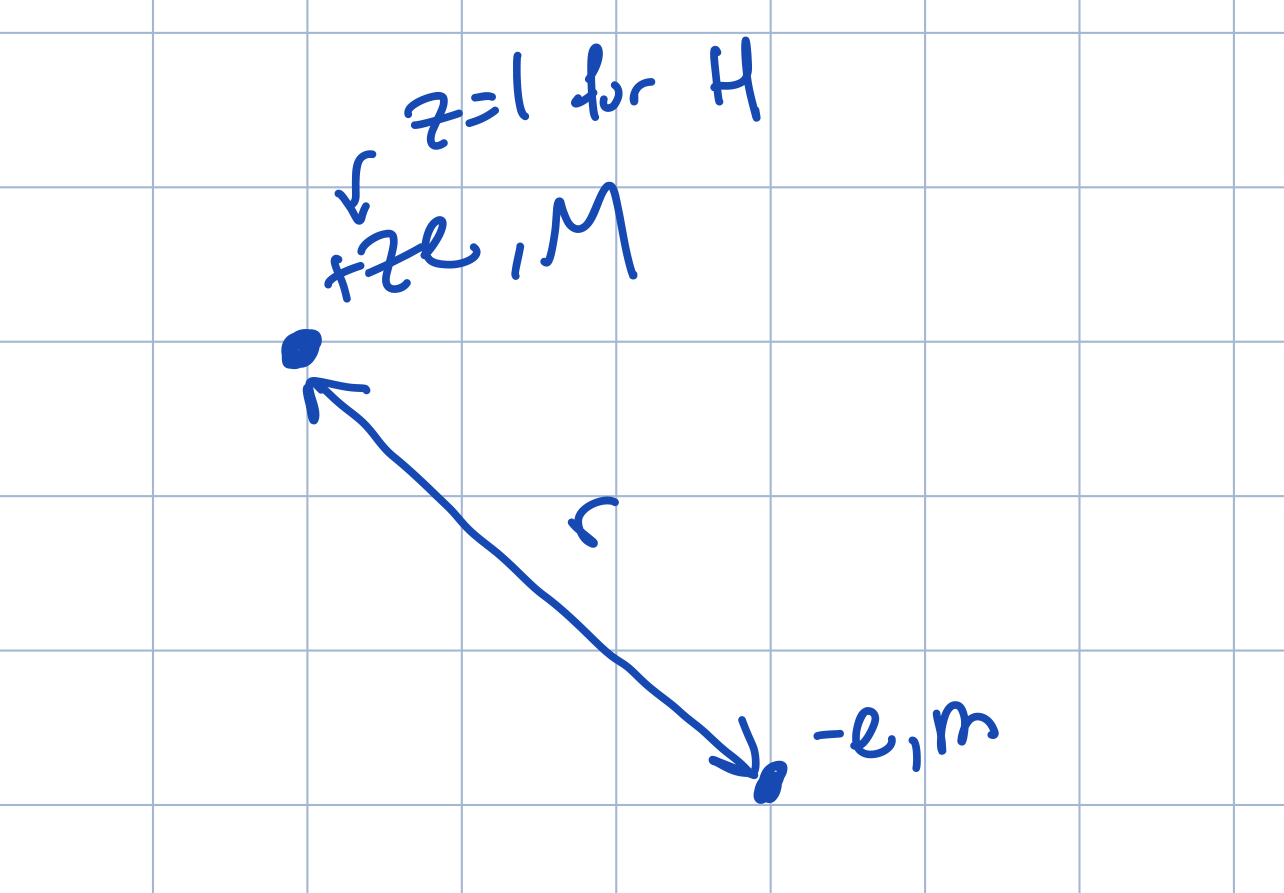 z=1 for H
+ze, M
r
-e, m